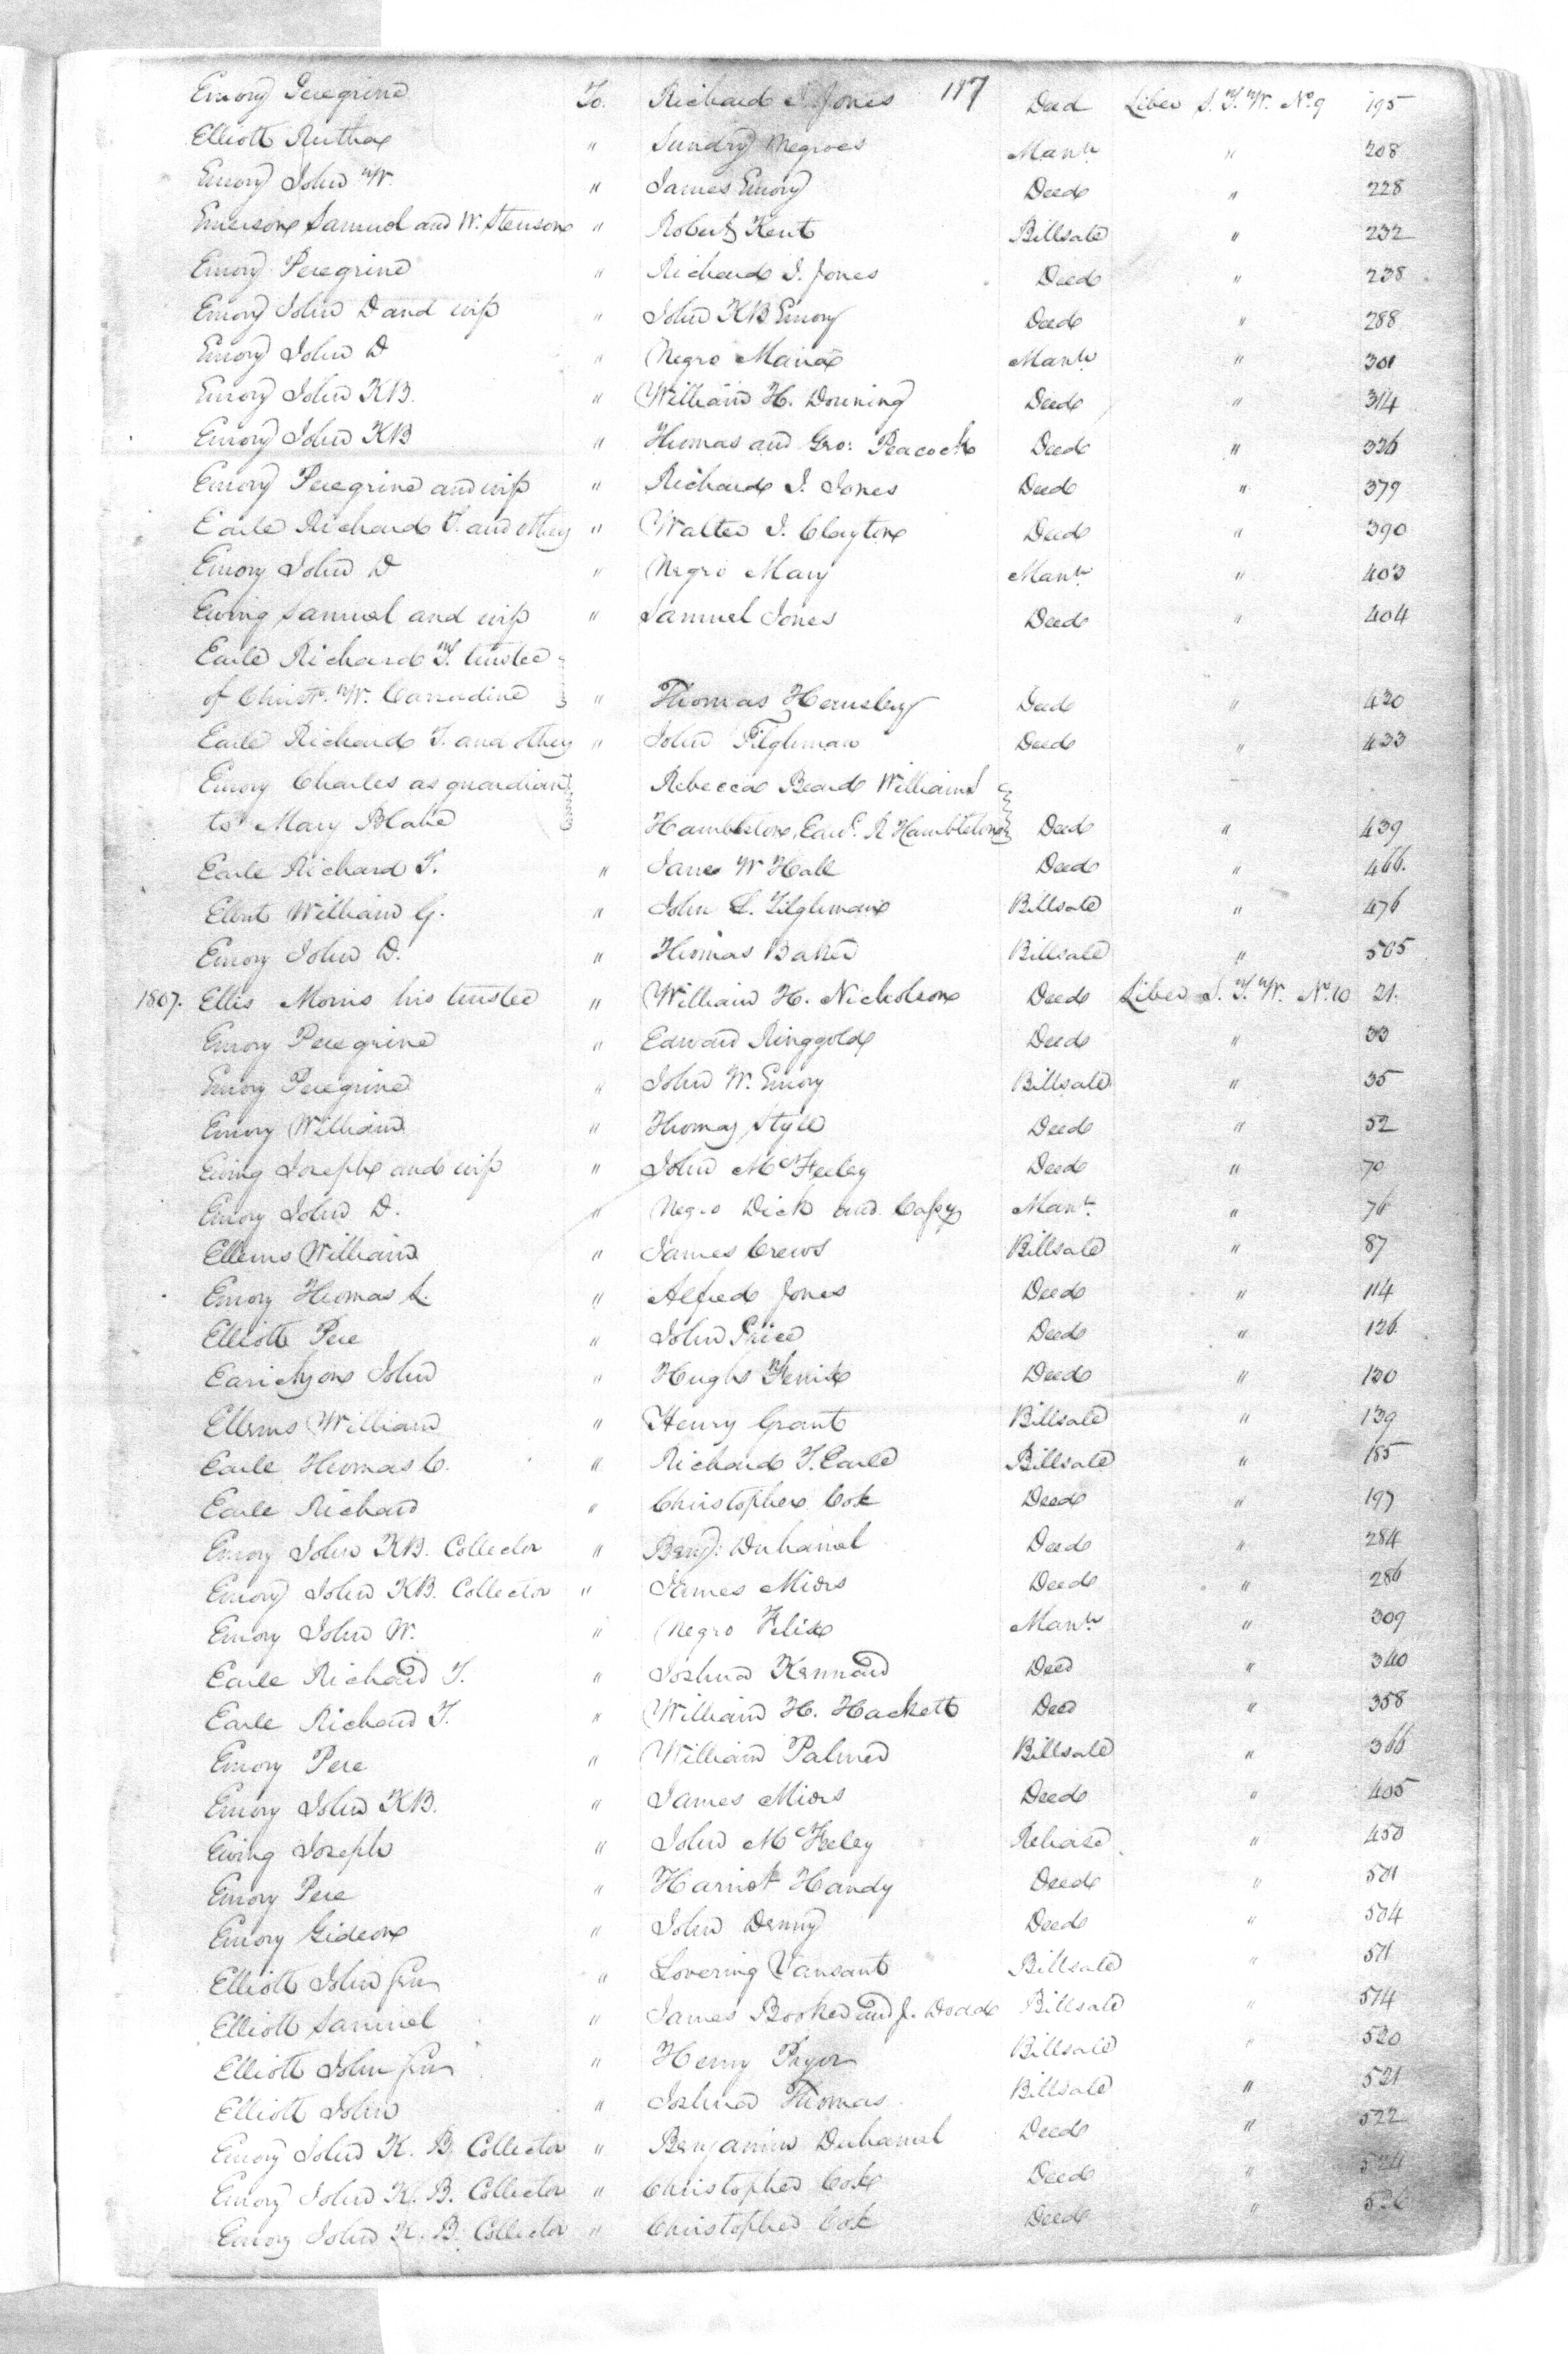 117
Emory Peregrine To. Richard I. Jones Deed Liber S. T. W. No. 9 195
Elliott Rutha " Sundry Negroes Mann 208
Emory John W. " James Emory Deed " 228
Emerson Samuel and W. Stenson " Robert Kent Billsale " 232
Emory Peregrine " Richard I. Jones Deed " 238
Emory John D and wife " John KB Emory Deed " 288
Emory John D " Negro Maria Mann " 301
Emory John KB. " William H. Downing Deed " 314
Emory John KB " Thomas and Geo: Peacock Deed " 336
Emory Peregrine and wife " Richard I. Jones Deed " 379
Earle Richard T. and others " Walter I. Clayton Deed " 390
Emory John D " Negro Mary Mann " 403
Ewing Samuel and wife " Samuel Jones Deed " 404
Earle Richard T. trustee
of Christr. W. Carradine " Thomas Hemsley Deed " 430
Earle Richard T. and others " John Tilghman Deed " 433
Emory Charles as guardian Rebecca Beard William
to Mary Blake Hambleton, Edwd. R Hambleton Deed " 439
Earle Richard T. " James W Hall Deed " 466.
Elbert William G. " John L. Tilghman Billsale " 476
Emory John D. " Thomas Baker Billsale " 505
1807. Ellis Morris his trustee " William H. Nicholson Deed Liber S. T. W. No. 10 21.
Emory Peregrine " Edward Ringgold Deed " 33
Emory Peregrine " John W. Emory Billsale " 35
Emory William " Thomas Style Deed " 52
Ewing Joseph and wife " John McFeeley Deed " 70
Emory John D. " Negro Dick and Cassy Mant. " 76
Ellems William " James Crews Billsale " 87
Emory Thomas L. " Alfred Jones Deed " 114
Elliott Pere " John Price Deed " 126
John " Hugh Deed " 130
Ellems William " Henry Grant Billsale " 139
Earle Thomas C. " Richard T. Earle Billsale " 185
Earle Richard " Christopher Cox Deed " 197
Emory John KB. Collector " Benj: Duhamel Deed " 284
Emory John KB. Collector " James Miers Deed " 286
Emory John W. " Negro Felix Mann " 309
Earle Richard T. " Joshua Kennard Deed " 340
Earle Richard T. " William H. Hackett Deed " 358
Emory Pere " William Palmer Billsale " 366
Emory John KB. " James Miers Deed " 405
Ewing Joseph " John McFeeley Release " 450
Emory Pere " Harriot Handy Deed " 501
Emory Gideon " John Denny Deed " 504
Elliott John Jun " Lovering Vansant Billsale " 511
Elliott Samuel " James Booker and J. Dodd Billsale " 514
Elliott John Jun " Henry Pryor Billsale 520
Elliott John " Joshua Thomas Billsale " 521
Emory John K. B. Collector " Benjamin Duhamel Deed " 522
Emory John K. B. Collector " Christopher Cox Deed " 524
Emory John K. B. Collector " Christopher Cox Deed " 526